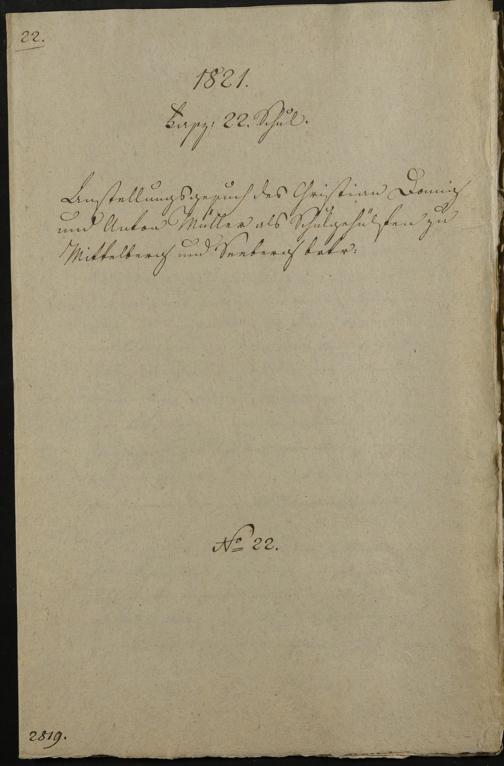 22.
1821.
22. Schul.
Anstellungsgesuch des Christian Domig
und Anton Müller als Schulgehülfen zu
Mittelberg und Seeberg betr:
No 22.
2819.